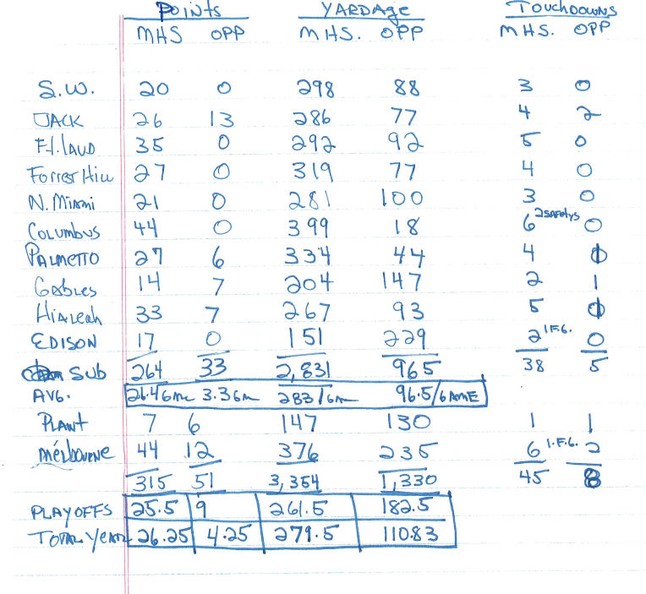 Points YARDAGE Touchdowns
MHS OPP MHS. OPP MHS. OPP
S.W. 20 0 298 88 3 0
JACK 26 13 286 77 4 2
Ft. LAUD 35 0 292 92 5 0
Forrest Hill 27 0 319 77 4 0
N. Miami 21 0 281 100 3 0
Columbus 44 0 399 18 6 2 Safetys 0
PALMETTO 27 6 334 44 4 1
Gables 14 7 204 147 2 1
Hialeah 33 7 267 93 5 1
EDISON 17 0 151 229 2 1F.G. 0
Sub 264 33 2,831 965 38 5
AVG. 26.4 Gm 3.3 Gm 283/Gm 96.5/GAME
PLANT 7 6 147 130 1 1
Melbourne 44 12 376 235 6 1.F.G. 2
315 51 3,354 1,330 45 8
PLAYOFFS 25.5 9 261.5 182.5
TOTAL Year 26.25 4.25 279.5 110.83